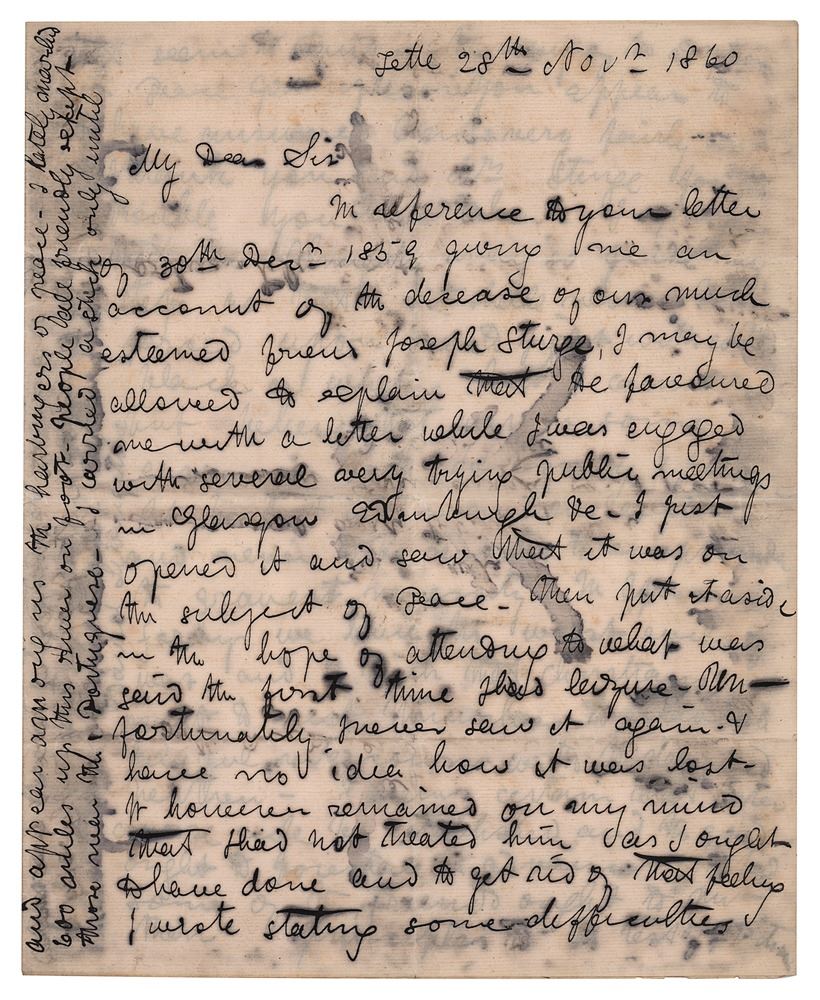 Tette 28th Novr 1860
My Dear Sir
In reference to your letter
of 30th Decr 1859 giving me an
account of the decease of our much
esteemed friend Joseph Sturge, I may be
allowed to explain that He favoured
me with a letter while I was engaged
with several very trying public meetings
in Glasgow Edinburgh &c - I just
opened it and saw that it was on
the subject of Peace - then put it aside
in the hope of attending to what was
said the first time I had leizure - Un-
fortunately I never saw it again - &
have no idea how it was lost -
It however remained on my mind
that I had not treated him as I ought
to have done and to get rid of that feeling
I wrote stating some difficulties
and appear among us the harbingers of peace - I lately marched
600 miles up this river on foot - People all friendly except
those near the Portuguese - I carried a stick only until